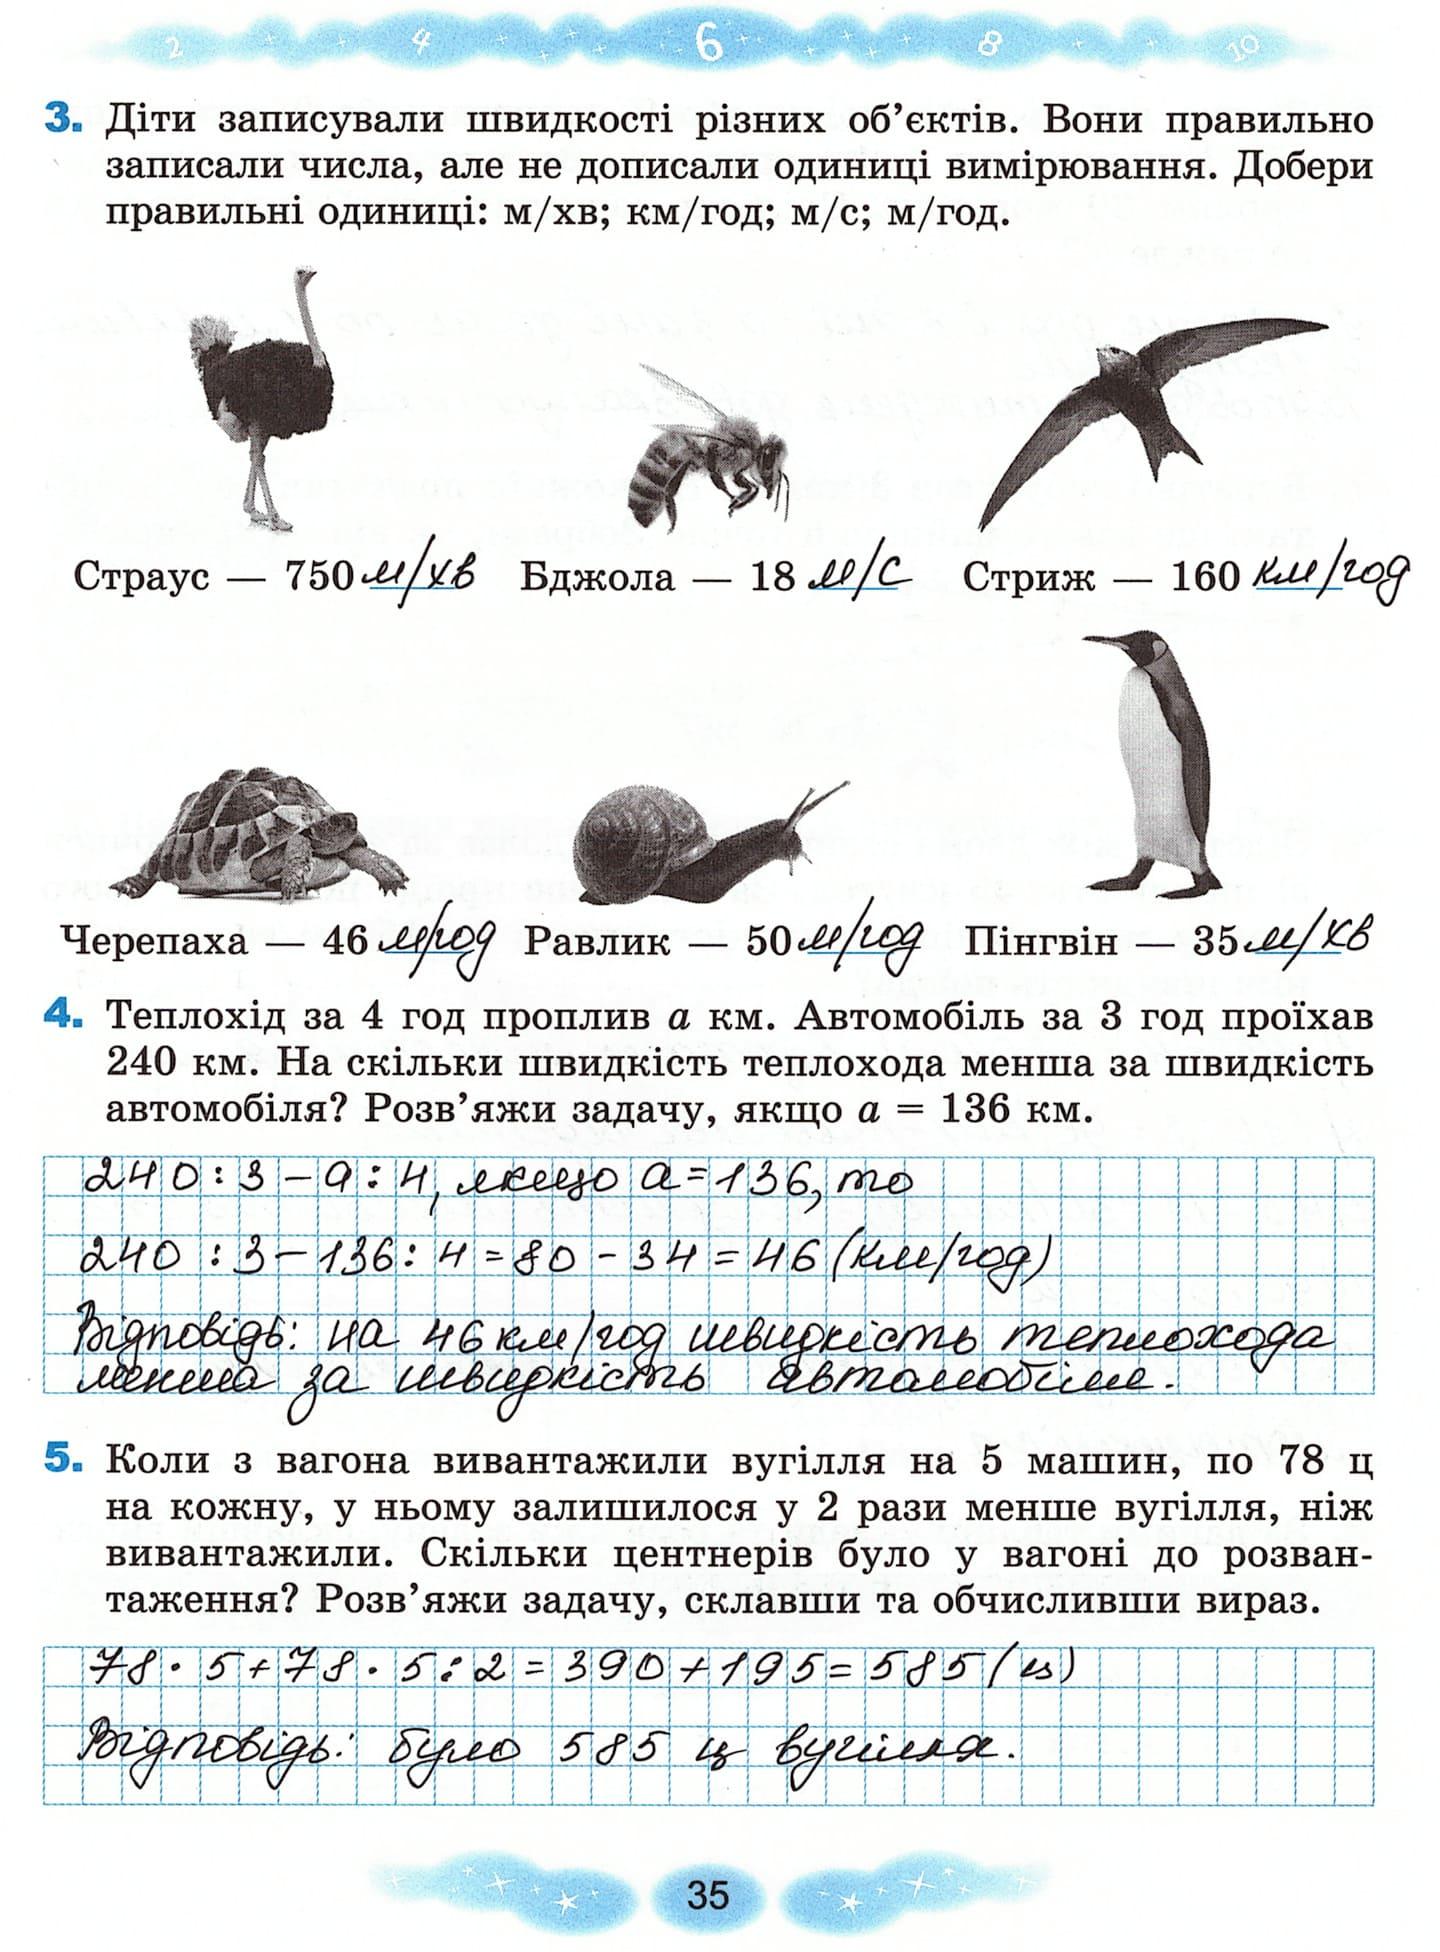 2 4 6 8 10
3. Діти записували швидкості різних об'єктів. Вони правильно
записали числа, але не дописали одиниці вимірювання. Добери
правильні одиниці: м/хв; км/год; м/с; м/год.
Страус — 750 м/хв Бджола — 18 м/с Стриж — 160 км/год
Черепаха — 46 м/год Равлик — 50 м/год Пінгвін — 35 м/хв
4. Теплохід за 4 год проплив a км. Автомобіль за 3 год проїхав
240 км. На скільки швидкість теплохода менша за швидкість
автомобіля? Розв'яжи задачу, якщо a = 136 км.
240 : 3 – a : 4, якщо a = 136, то
240 : 3 – 136 : 4 = 80 – 34 = 46 (км/год)
Відповідь: на 46 км/год швидкість теплохода
менша за швидкість автомобіля.
5. Коли з вагона вивантажили вугілля на 5 машин, по 78 ц
на кожну, у ньому залишилося у 2 рази менше вугілля, ніж
вивантажили. Скільки центнерів було у вагоні до розван-
таження? Розв'яжи задачу, склавши та обчисливши вираз.
78 · 5 + 78 · 5 : 2 = 390 + 195 = 585 (ц)
Відповідь: було 585 ц вугілля.
35